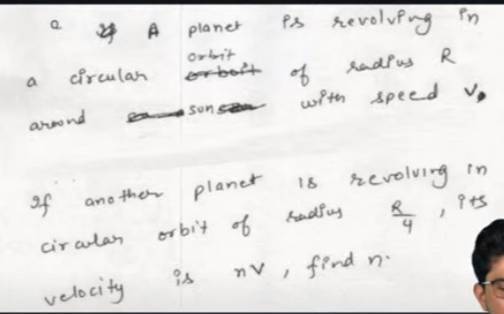 Q A planet is revolving in
a circular orbit of radius R
around sun with speed v.
If another planet is revolving in
circular orbit of radius R/4, its
velocity is nV, find n.